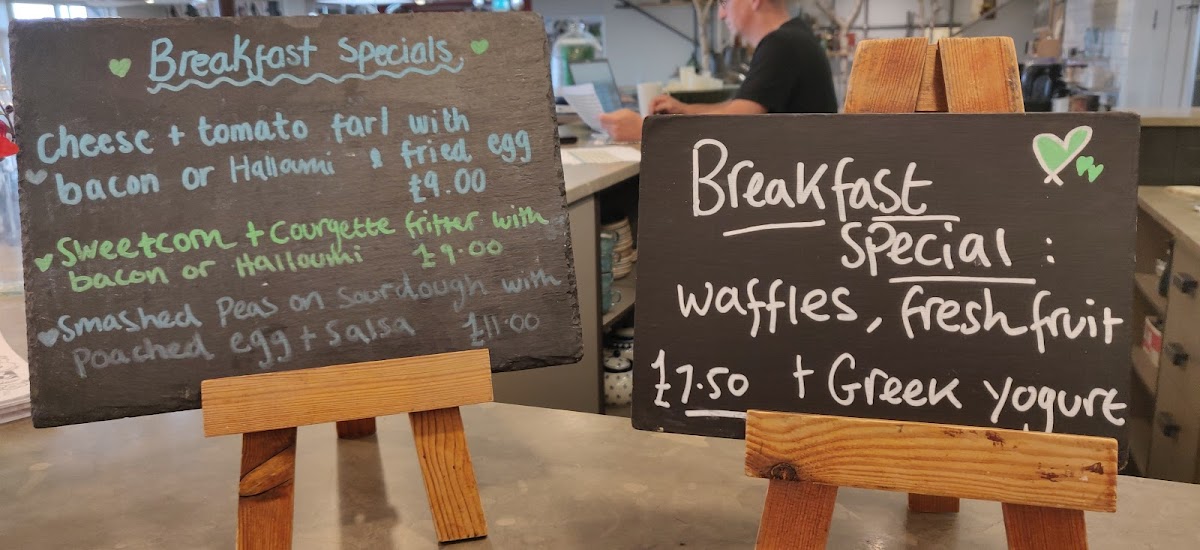 Breakfast Specials
Cheese + tomato farl with
bacon or Halloumi & fried egg
£9.00
Sweetcorn + Courgette fritter with
bacon or Halloumi £9.00
Smashed Peas on Sourdough with
poached egg + Salsa £11.00
Breakfast
Special :
waffles, fresh fruit
£7.50 + Greek yogurt